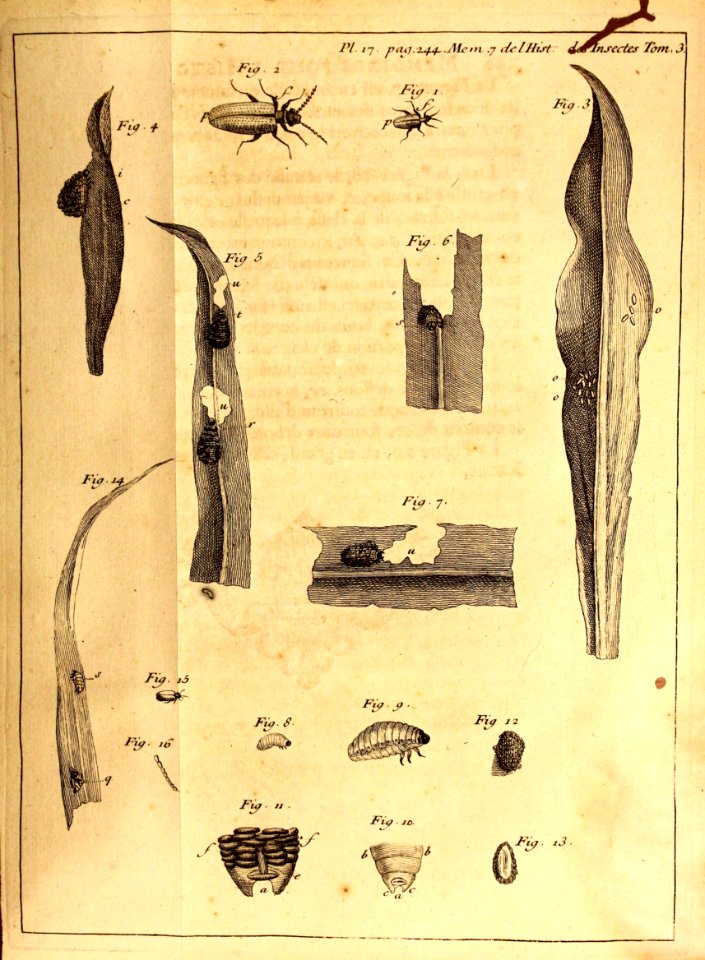 Pl. 17. pag. 244. Mem. 7 de l Hist. des Insectes Tom. 3
Fig. 2
f
p
Fig. 1.
f
p
Fig. 3
o
o
o
Fig. 4
i
c
Fig 5
u
t
u
r
Fig. 6.
s
Fig. 7.
u
Fig. 14
s
q
Fig. 15
Fig. 16
Fig. 8.
Fig. 9.
Fig. 12
Fig. 11.
f
f
e
a
Fig. 10.
b
b
c
c
a
Fig. 13.